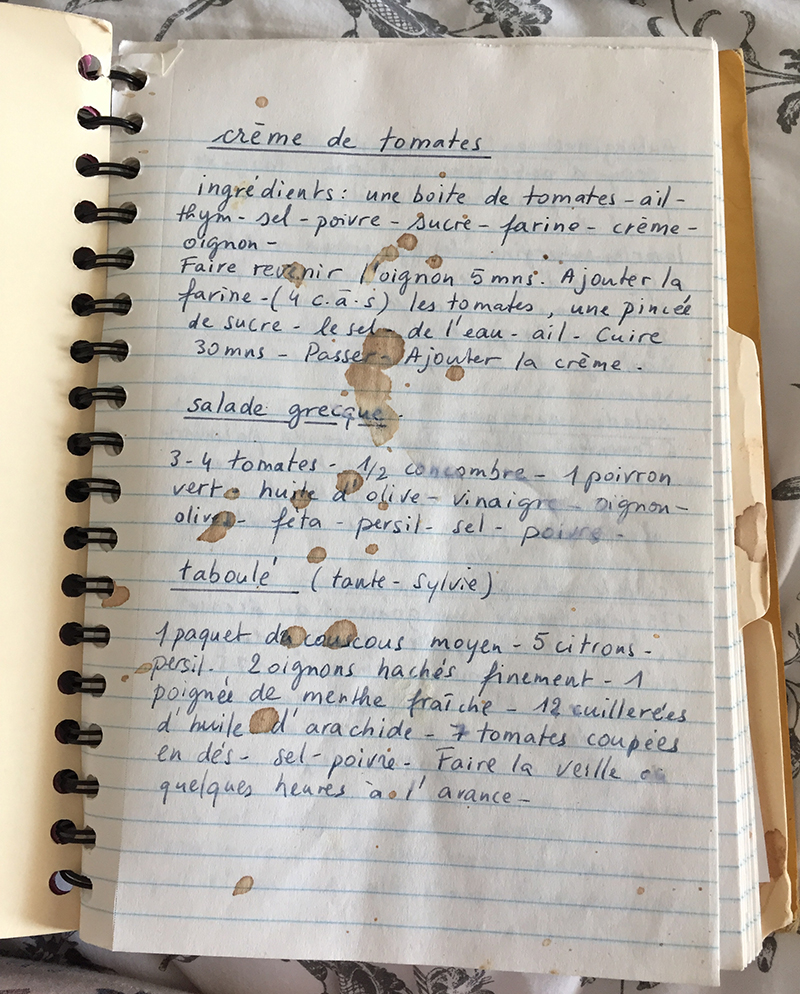 crème de tomates
ingrédients : une boite de tomates - ail -
thym - sel - poivre - sucre - farine - crème -
oignon -
Faire revenir l'oignon 5 mns. Ajouter la
farine - (4 c.à.s) les tomates, une pincée
de sucre - le sel - de l'eau - ail - Cuire
30 mns - Passer - Ajouter la crème.
salade grecque.
3-4 tomates - 1/2 concombre - 1 poivron
vert - huile d'olive - vinaigre - oignon -
olives - féta - persil - sel - poivre -
taboulé (tante - Sylvie)
1 paquet du couscous moyen - 5 citrons -
persil. 2 oignons hachés finement - 1
poignée de menthe fraîche - 12 cuillerées
d'huile d'arachide - 7 tomates coupées
en dés - sel - poivre - Faire la veille ou
quelques heures à l'avance -